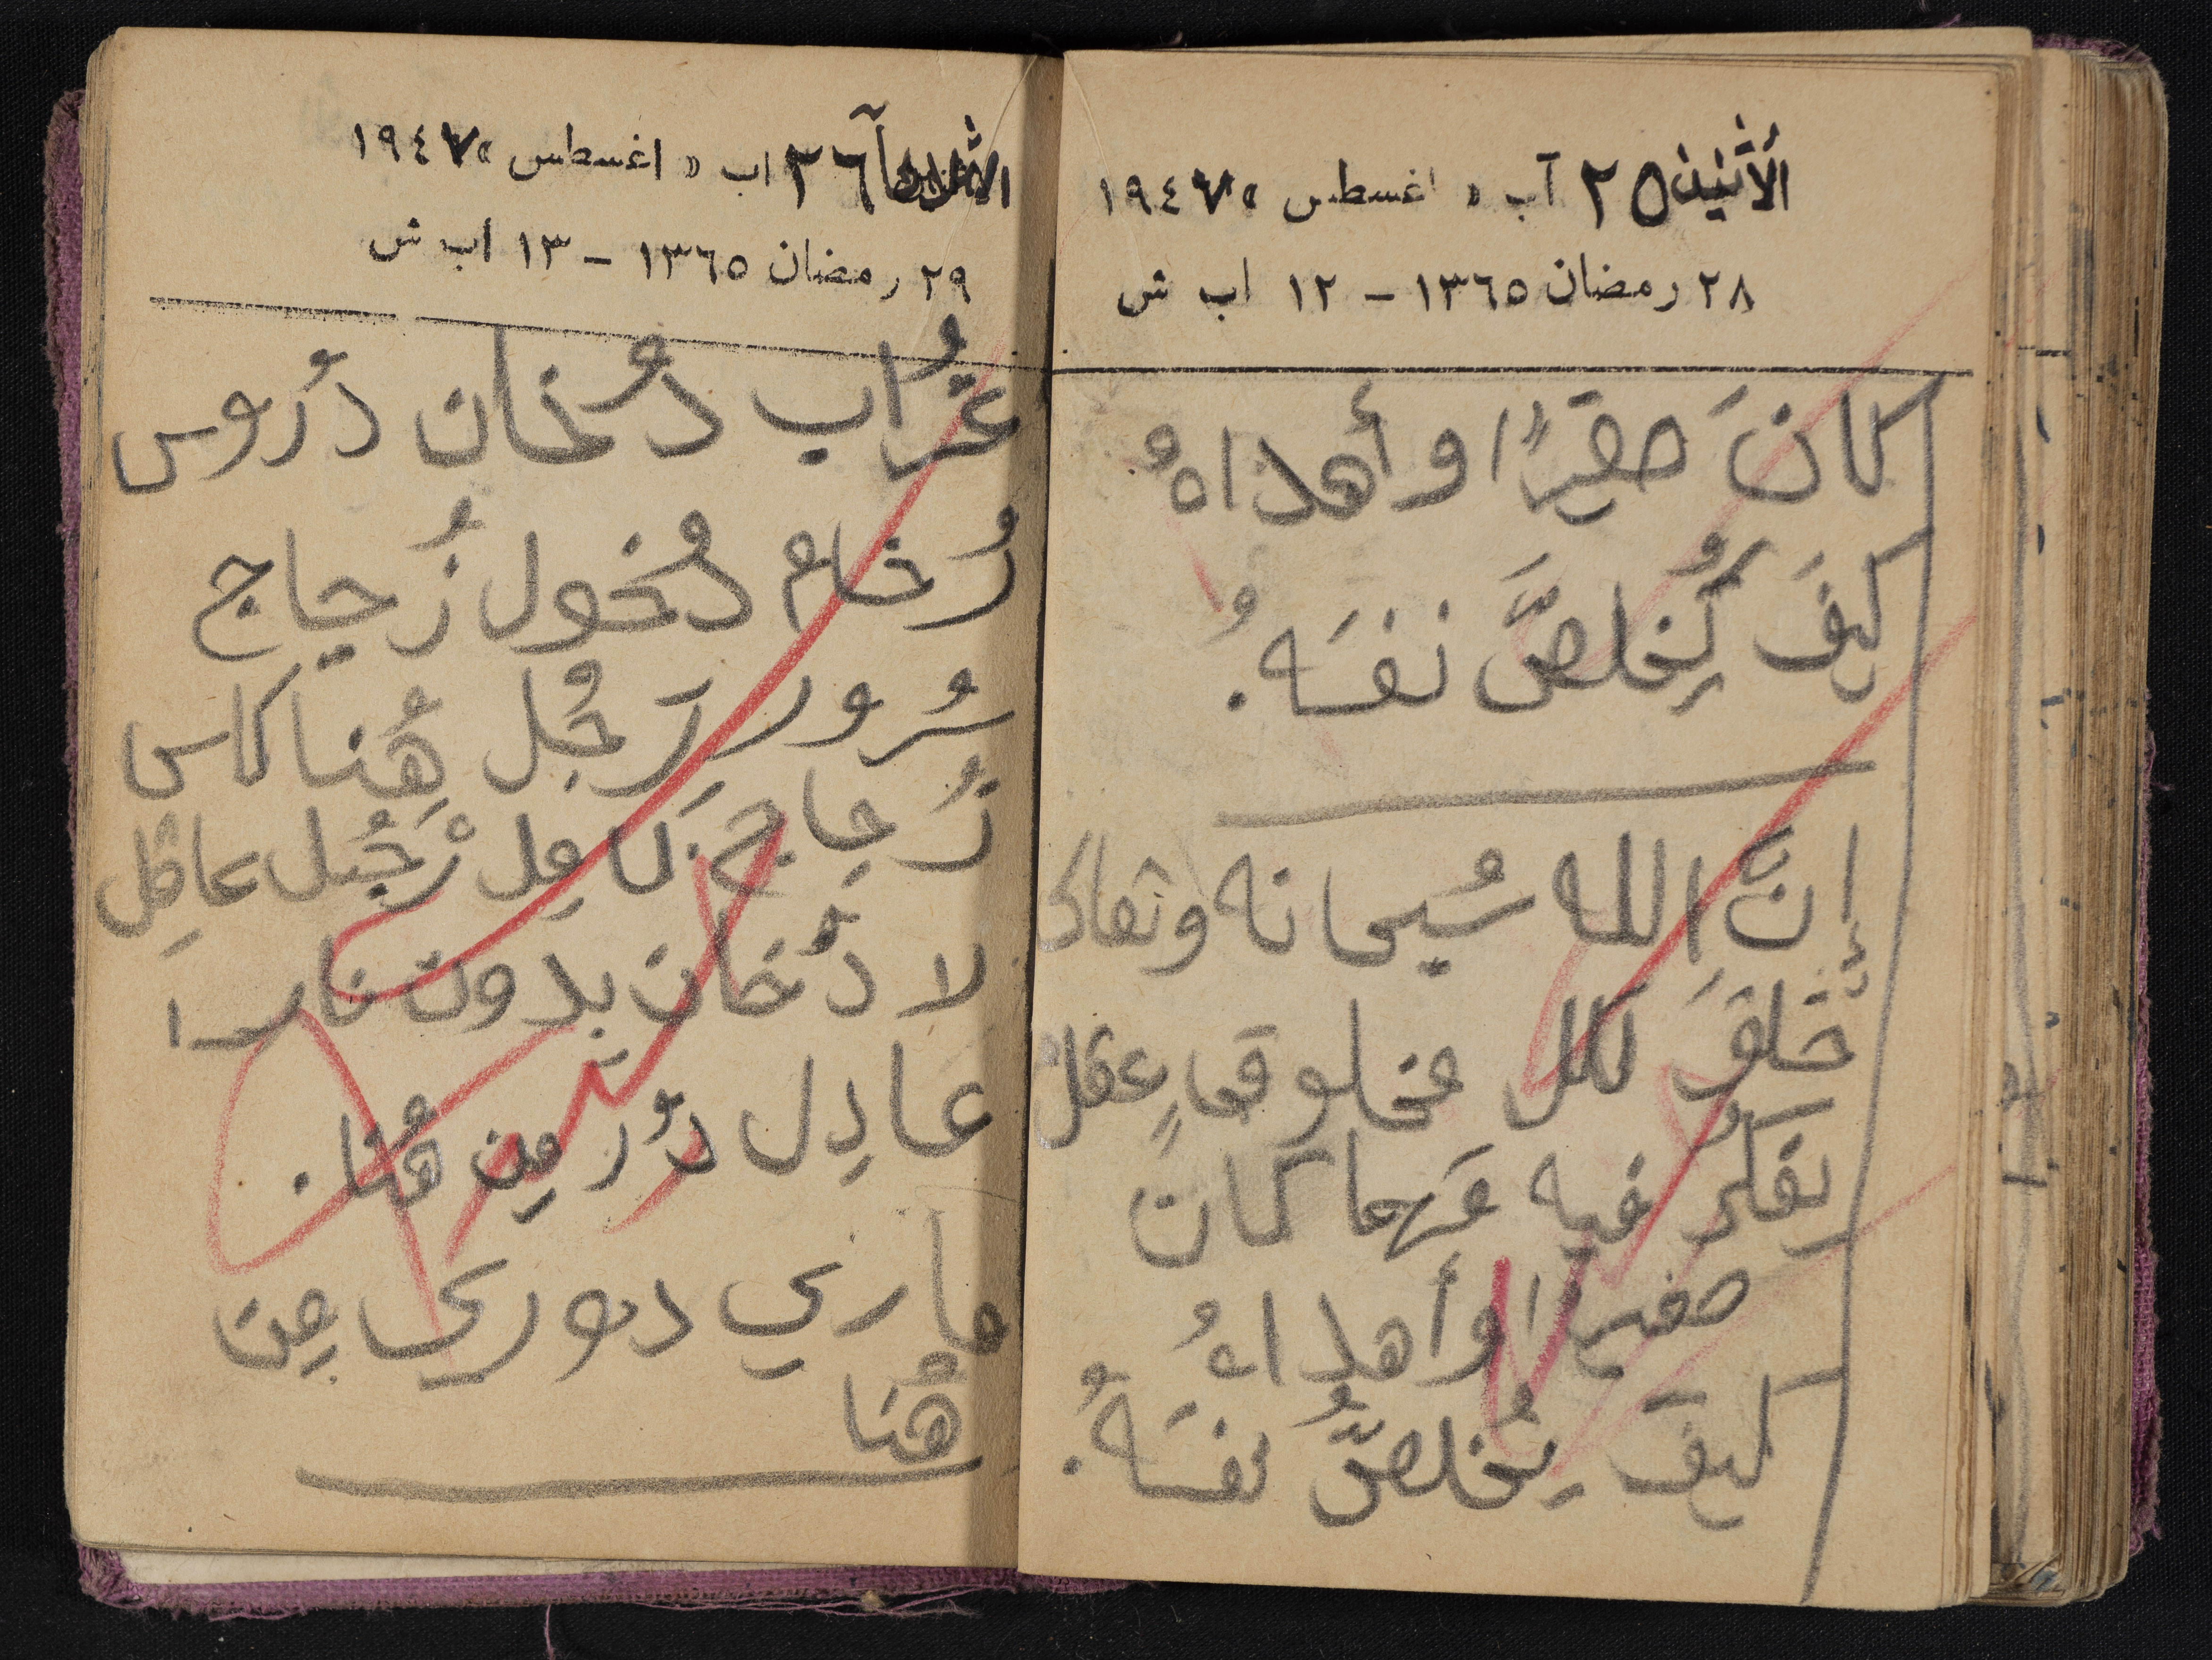 الأثنين ٢٥ آب « اغسطس » ١٩٤٧
٢٨ رمضان ١٣٦٥ – ١٢ اب ش
كانَ حقيرًا وأهداهُ
كيفَ يُخلصَّ نفسَهُ.
إنَّ الله سُبحانه وتعالى
خَلقَ لكل مخلوقٍ عقلاً
يفكرُ فيه مَهما كان
صغيرا وأهداهُ
كيفَ يُخلصَّ نفسَهُ.
الثلاثاء ٢٦ آب « اغسطس » ١٩٤٧
٢٩ رمضان ١٣٦٥ – ١٣ اب ش
غُراب دُخان دُروس
رُخام دُخول زُجاج
سُرور رَجُل هُنا كاس
زُجاج كامِل رَجُل عاقِل
لا دُخان بدون نار
عادِل دُر مِن هُنا.
ماري دوري مِن
هُنا